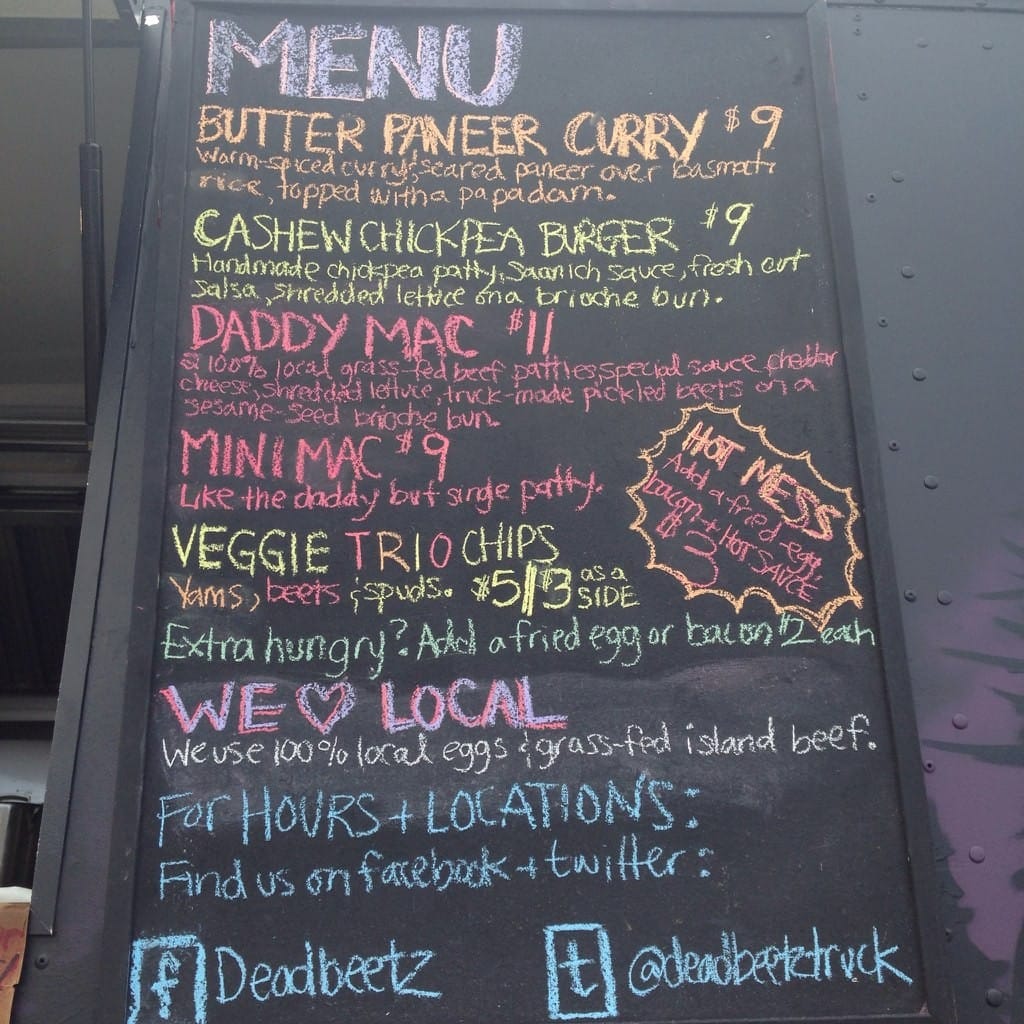 MENU
BUTTER PANEER CURRY $9
warm-spiced curry, seared paneer over basmati
rice, topped with a papadam.
CASHEW CHICKPEA BURGER $9
Handmade chickpea patty, Saanich sauce, fresh cut
salsa, shredded lettuce on a brioche bun.
DADDY MAC $11
2 100% local grass-fed beef patties special sauce cheddar
cheese, shredded lettuce, truck-made pickled beets on a
sesame-seed brioche bun.
MINI MAC $9
Like the daddy but single patty.
HOT MESS
Add a fried egg,
bacon + HOT SAUCE
$3
VEGGIE TRIO CHIPS
Yams, beets & spuds. $5/$3 as a
SIDE
Extra hungry? Add a fried egg or bacon $2 each
WE ♡ LOCAL
We use 100% local eggs & grass-fed island beef.
For HOURS + LOCATIONS:
Find us on facebook + twitter:
f Deadbeetz t @deadbeetztruck